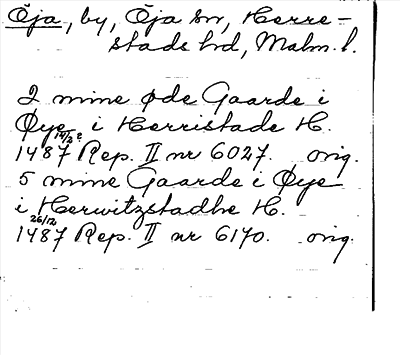 Öja, by, Öja sn, Herre-
stads hd, Malm. l.
2 mine øde Gaarde i
Øye i Herristade H.
1487 14/2 ? Rep. II nr 6027. orig.
5 mine Gaarde i Øye
i Herwitzstadhe H.
1487 26/12 Rep. II nr 6170. orig.